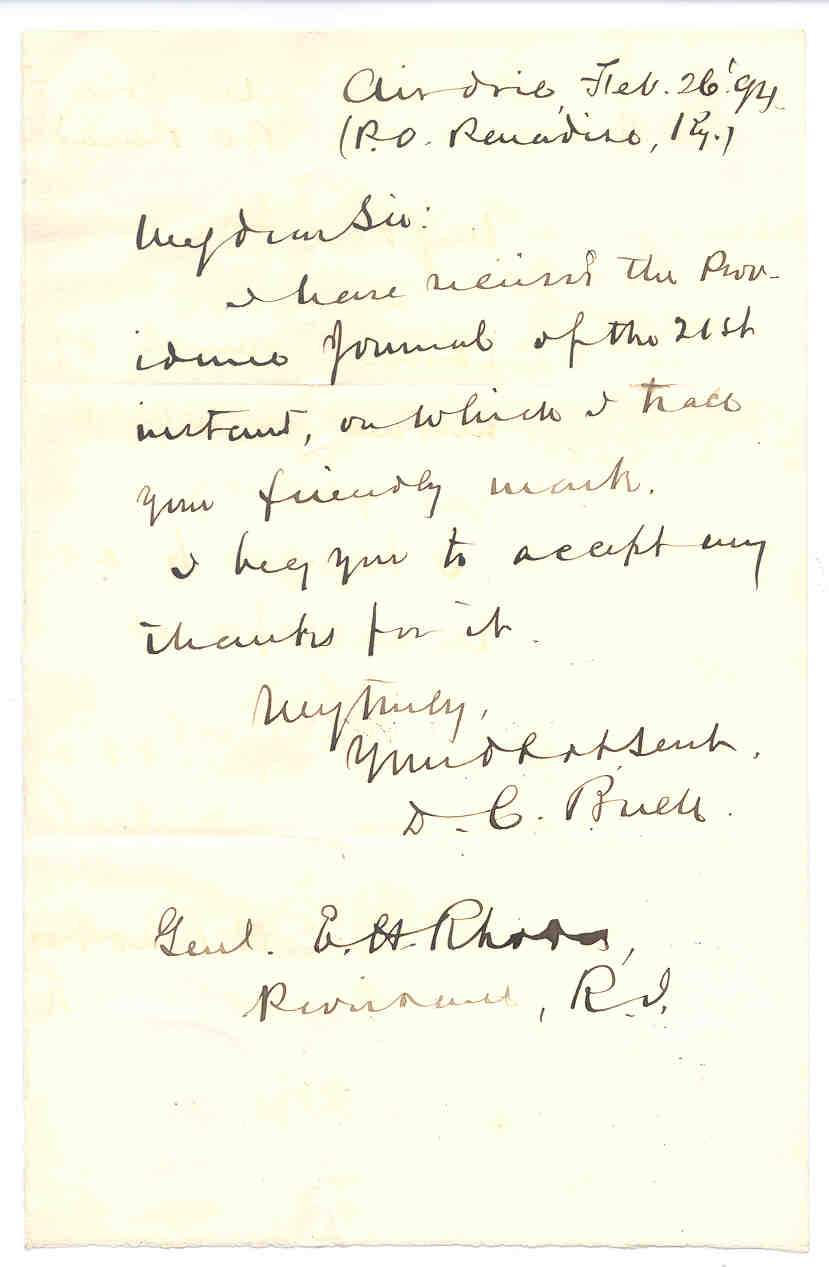 Airdrie, Feb. 26'. 94.
(P.O. Paradise, Ky.)
My dear Sir:
I have received the Prov-
idence Journal of the 21st
instant, on which I trace
your friendly mark.
I beg you to accept my
thanks for it.
Very truly,
Your obdt Servt.
D. C. Buell.
Genl. E. H. Rhodes,
Providence, R. I.